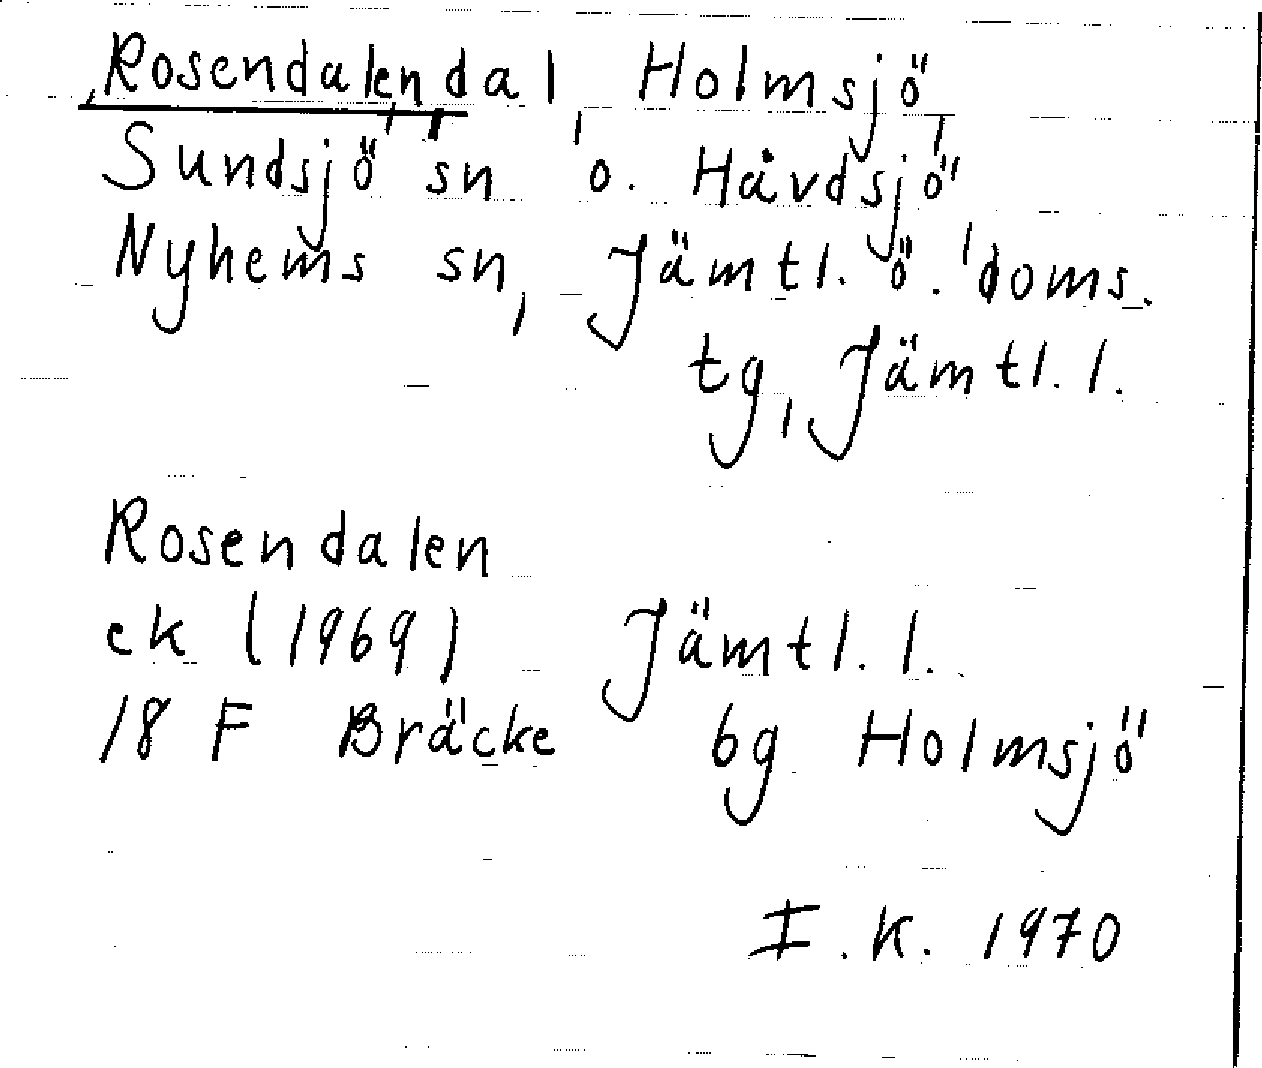 Rosendalen dal Holmsjö,
Sundsjö sn, o. Håvdsjö,
Nyhems sn, Jämtl. ö. doms.
tg, Jämtl. l.
Rosendalen
ek (1969) Jämtl. l.
18 F Bräcke bg Holmsjö
I. K. 1970